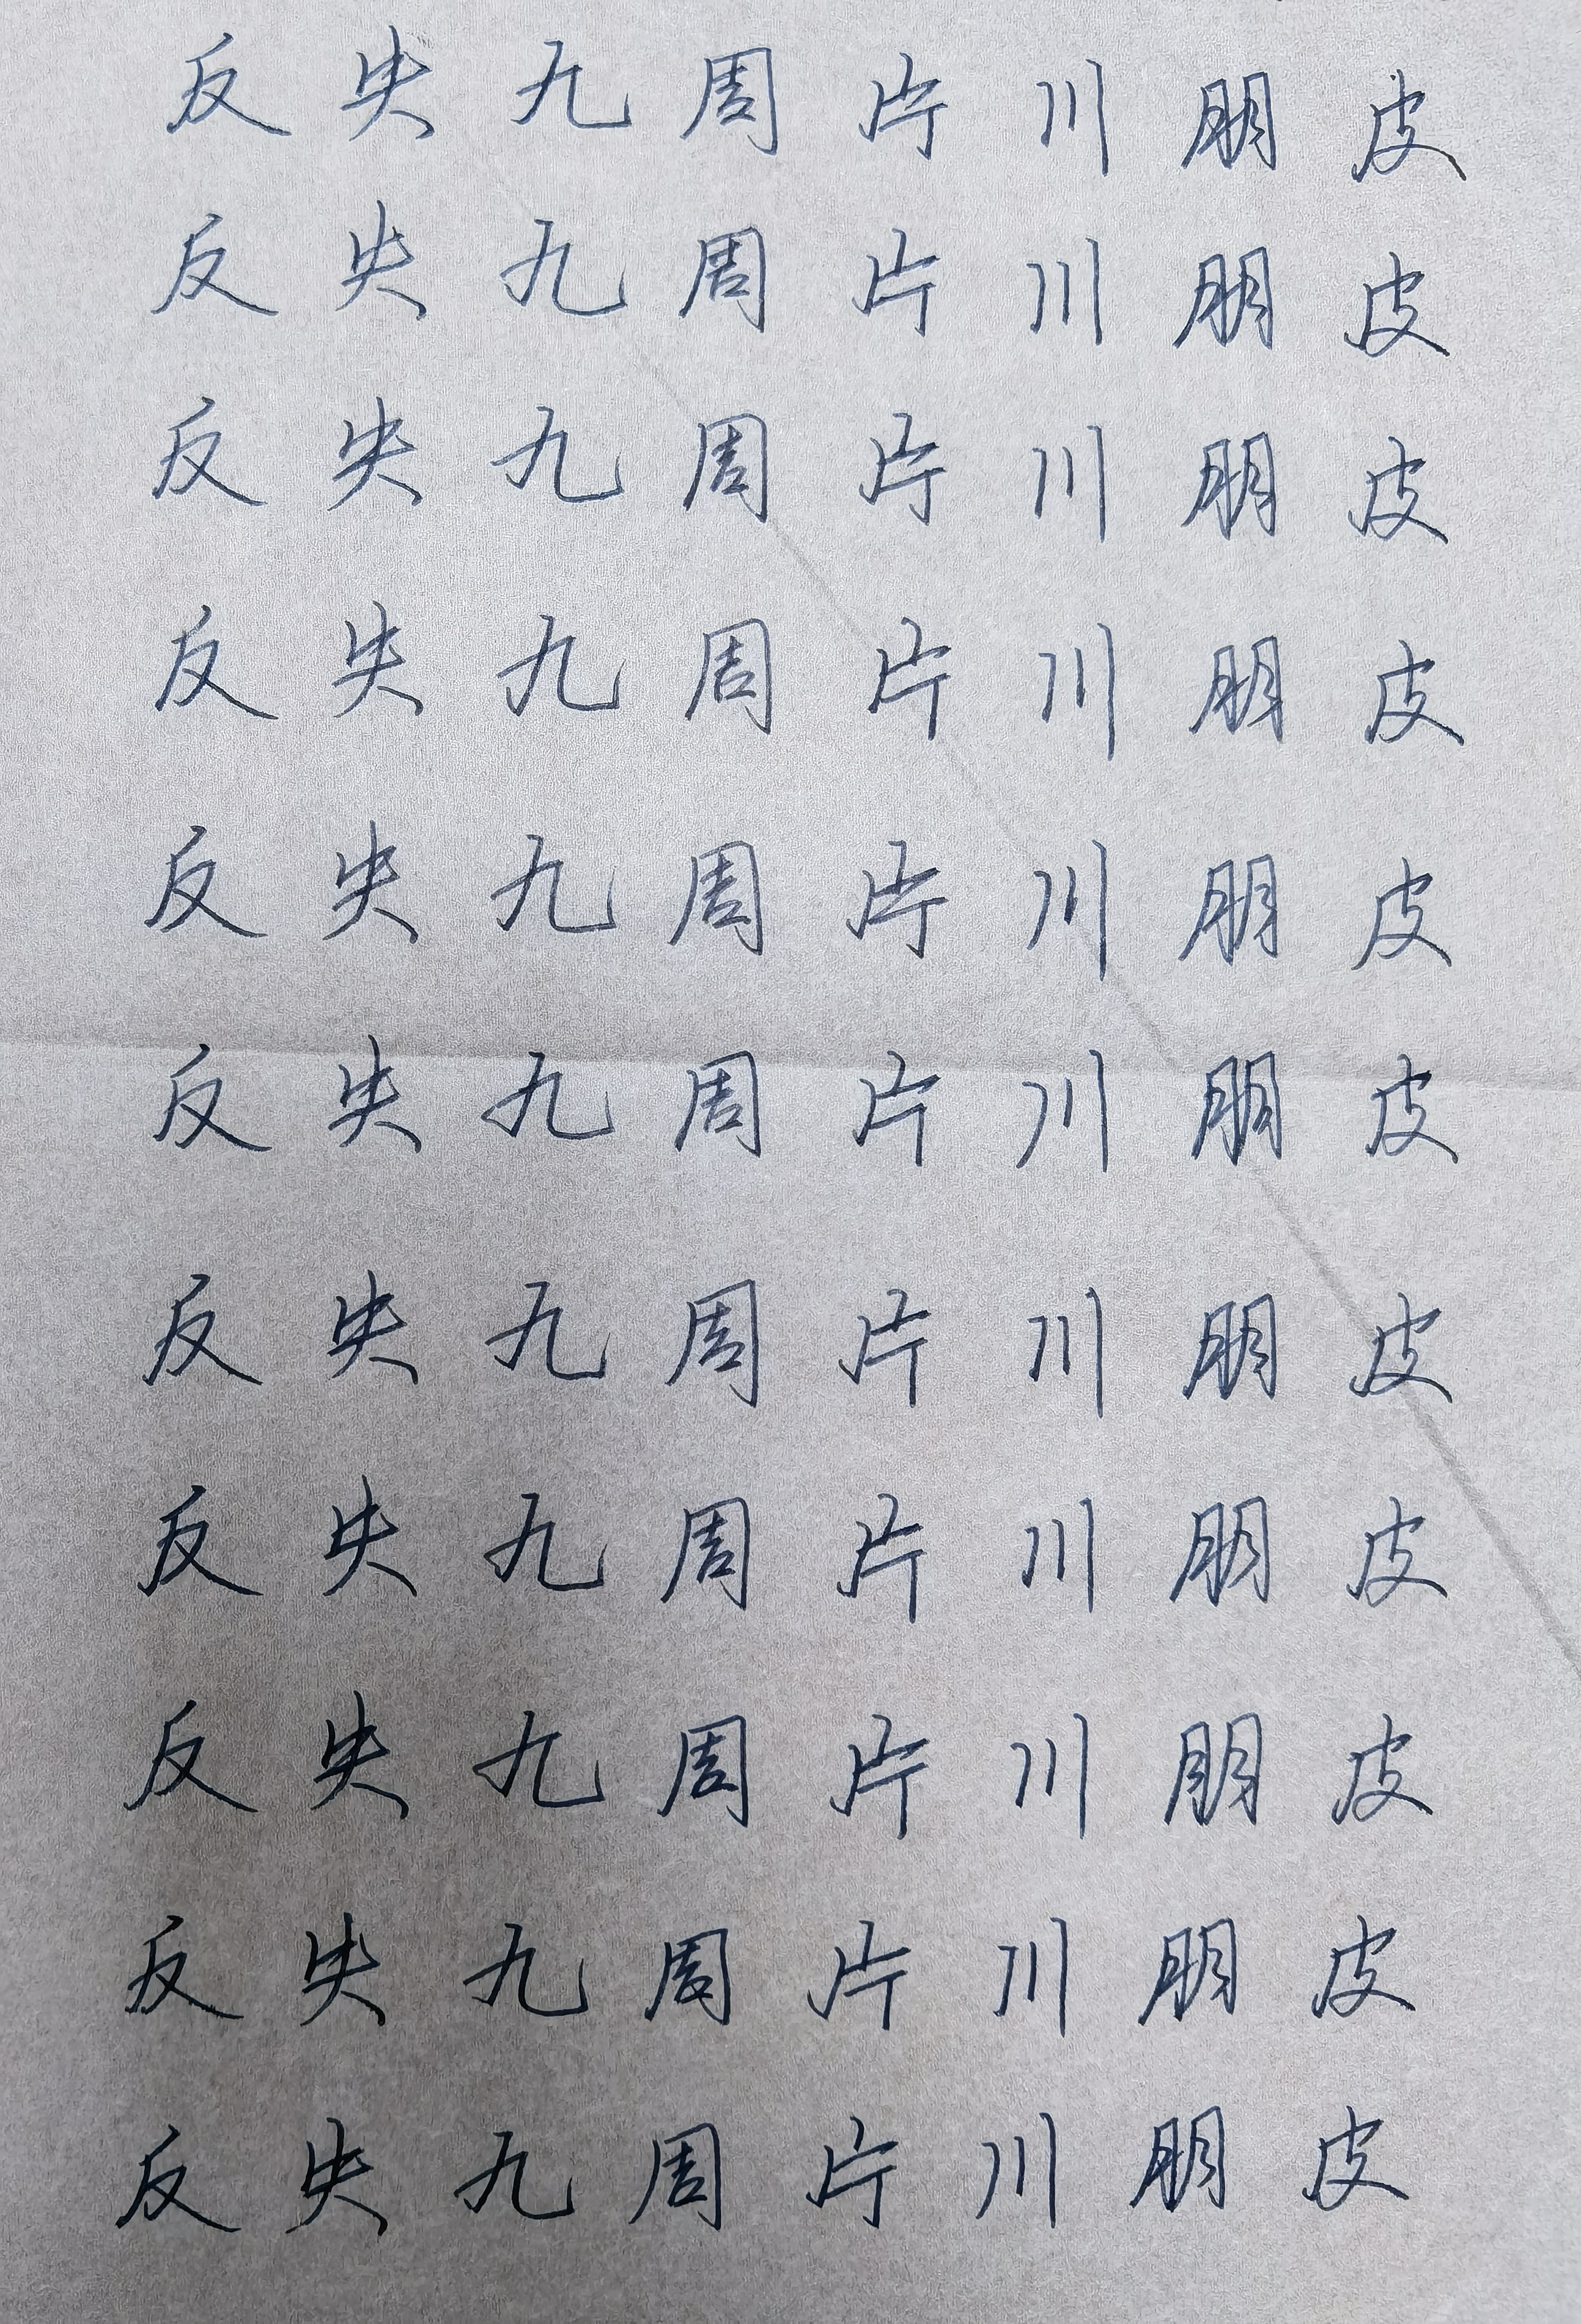 反 失 九 周 片 川 朋 皮
反 失 九 周 片 川 朋 皮
反 失 九 周 片 川 朋 皮
反 失 九 周 片 川 朋 皮
反 失 九 周 片 川 朋 皮
反 失 九 周 片 川 朋 皮
反 失 九 周 片 川 朋 皮
反 失 九 周 片 川 朋 皮
反 失 九 周 片 川 朋 皮
反 失 九 周 片 川 朋 皮
反 失 九 周 片 川 朋 皮